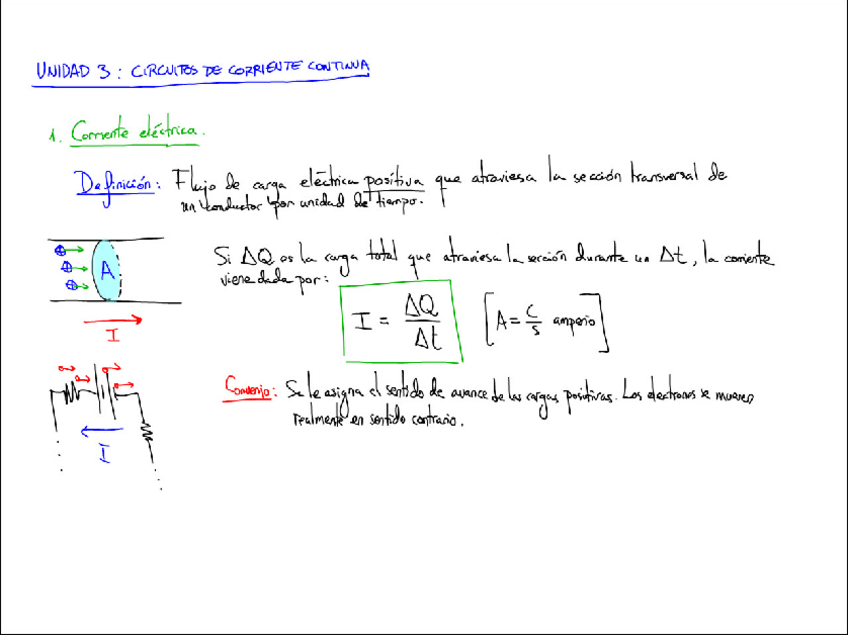 UNIDAD 3: CIRCUITOS DE CORRIENTE CONTINUA
1. Corriente eléctrica.
Definición: Flujo de carga eléctrica positiva que atraviesa la sección transversal de
un conductor por unidad de tiempo.
Si ΔQ es la carga total que atraviesa la sección durante un Δt, la corriente
viene dada por:
A
I
I = ΔQ/Δt [A = C/s amperio]
Convenio: Se le asigna el sentido de avance de las cargas positivas. Los electrones se mueven
realmente en sentido contrario.
I